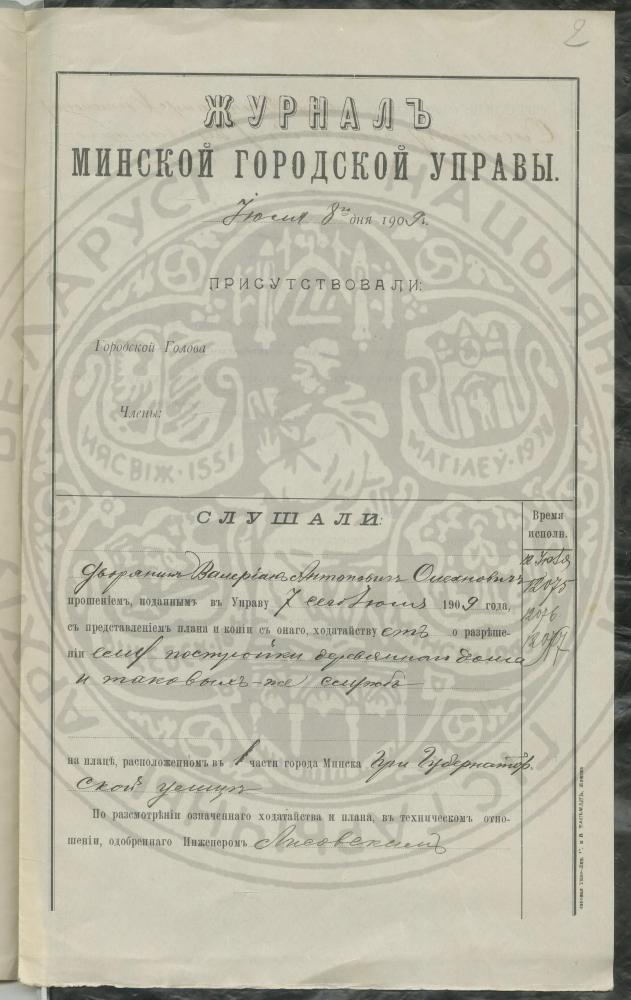 2
ЖУРНАЛЪ
МИНСКОЙ ГОРОДСКОЙ УПРАВЫ.
Іюля 8го дня 1909 г.
ПРИСУТСТВОВАЛИ:
Городской Голова
Члены:
СЛУШАЛИ:
Время исполн.
Дворянинъ Валеріанъ Антоновичъ
12 Іюля
прошеніемъ, поданнымъ въ Управу 7 сего Іюля 1909 года,
12075
съ представленіемъ плана и копіи съ онаго, ходатайствуетъ о разрѣше-
12076
ніи ему постройки деревяннаго дома
12077
и таковыхъ-же службъ
на планѣ, расположенномъ въ 1 части города Минска при Губернатор-
ской улицѣ
По разсмотрѣніи означеннаго ходатайства и плана, въ техническомъ отно-
шеніи, одобреннаго Инженеромъ
НЯСВІЖ·1551
МАГІЛЕЎ·19
БЕЛАРУСІ
НАЦЫЯ